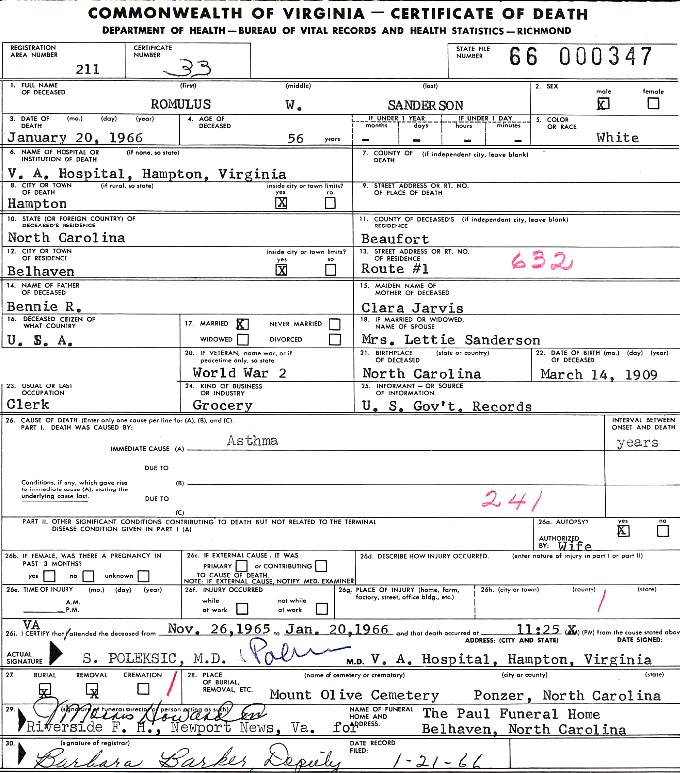 COMMONWEALTH OF VIRGINIA — CERTIFICATE OF DEATH
DEPARTMENT OF HEALTH—BUREAU OF VITAL RECORDS AND HEALTH STATISTICS—RICHMOND
REGISTRATION AREA NUMBER 211 CERTIFICATE NUMBER 33 STATE FILE NUMBER 66 000347
1. FULL NAME OF DECEASED (first) (middle) (last) 2. SEX male female
ROMULUS W. SANDERSON X
3. DATE OF DEATH (mo.) (day) (year) 4. AGE OF DECEASED IF UNDER 1 YEAR months days IF UNDER 1 DAY hours minutes 5. COLOR OR RACE
January 20, 1966 56 years – – – – White
6. NAME OF HOSPITAL OR INSTITUTION OF DEATH (if none, so state) 7. COUNTY OF DEATH (if independent city, leave blank)
V. A. Hospital, Hampton, Virginia
8. CITY OR TOWN OF DEATH (if rural, so state) inside city or town limits? yes no 9. STREET ADDRESS OR RT. NO. OF PLACE OF DEATH
Hampton X
10. STATE (OR FOREIGN COUNTRY) OF DECEASED'S RESIDENCE 11. COUNTY OF DECEASED'S RESIDENCE (if independent city, leave blank)
North Carolina Beaufort
12. CITY OR TOWN OF RESIDENCE inside city or town limits? yes no 13. STREET ADDRESS OR RT. NO. OF RESIDENCE 632
Belhaven X Route #1
14. NAME OF FATHER OF DECEASED 15. MAIDEN NAME OF MOTHER OF DECEASED
Bennie R. Clara Jarvis
16. DECEASED CITIZEN OF WHAT COUNTRY 17. MARRIED X NEVER MARRIED WIDOWED DIVORCED 18. IF MARRIED OR WIDOWED, NAME OF SPOUSE
U. S. A. Mrs. Lettie Sanderson
20. IF VETERAN, name war, or if peacetime only, so state 21. BIRTHPLACE OF DECEASED (state or country) 22. DATE OF BIRTH (mo.) (day) (year)
World War 2 North Carolina March 14, 1909
23. USUAL OR LAST OCCUPATION 24. KIND OF BUSINESS OR INDUSTRY 25. INFORMANT — OR SOURCE OF INFORMATION
Clerk Grocery U. S. Gov't. Records
26. CAUSE OF DEATH (Enter only one cause per line for (A), (B), and (C). INTERVAL BETWEEN ONSET AND DEATH
PART I. DEATH WAS CAUSED BY:
IMMEDIATE CAUSE (A) Asthma years
DUE TO
Conditions, if any, which gave rise to immediate cause (A), stating the underlying cause last. (B)
DUE TO 241
(C)
PART II. OTHER SIGNIFICANT CONDITIONS CONTRIBUTING TO DEATH BUT NOT RELATED TO THE TERMINAL DISEASE CONDITION GIVEN IN PART I (A) 26a. AUTOPSY? yes X no
AUTHORIZED BY: Wife
26b. IF FEMALE, WAS THERE A PREGNANCY IN PAST 3 MONTHS? yes no unknown
26c. IF EXTERNAL CAUSE, IT WAS PRIMARY or CONTRIBUTING TO CAUSE OF DEATH. NOTE: IF EXTERNAL CAUSE, NOTIFY MED. EXAMINER
26d. DESCRIBE HOW INJURY OCCURRED. (enter nature of injury in part I or part II)
26e. TIME OF INJURY (mo.) (day) (year) A.M. P.M. 26f. INJURY OCCURRED while at work not while at work 26g. PLACE OF INJURY (home, farm, factory, street, office bldg., etc.) 26h. (city or town) (county) (state)
VA
26i. I CERTIFY that attended the deceased from Nov. 26,1965 to Jan. 20,1966 and that death occurred at 11:25 (PM) from the cause stated above
ADDRESS: (CITY AND STATE) DATE SIGNED:
ACTUAL SIGNATURE S. POLEKSIC, M.D. M.D. V. A. Hospital, Hampton, Virginia
27. BURIAL X REMOVAL X CREMATION 28. PLACE OF BURIAL, REMOVAL, ETC. (name of cemetery or crematory) (city or county) (state)
Mount Olive Cemetery Ponzer, North Carolina
29. (signature of funeral director or person acting as such) NAME OF FUNERAL HOME AND ADDRESS: The Paul Funeral Home
Riverside F. H., Newport News, Va. for Belhaven, North Carolina
30. (signature of registrar) DATE RECORD FILED:
Barbara Barker, Deputy 1-21-66